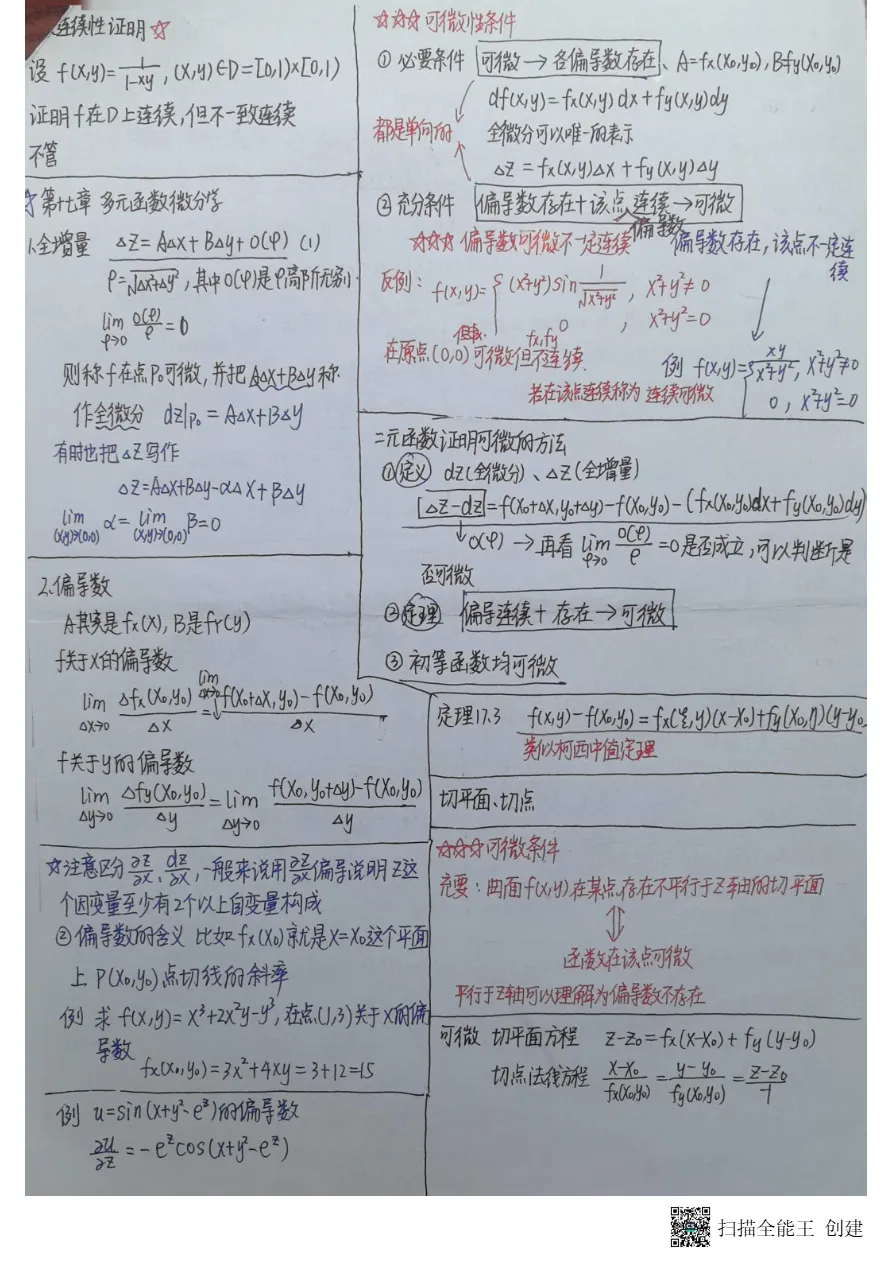 连续性证明☆
设 f(x,y)=1/(1-xy), (x,y)∈D=[0,1)×[0,1)
证明f在D上连续,但不一致连续
不管
☆第十七章 多元函数微分学
1.全增量 △z=A△x+B△y+o(ρ) (1)
ρ=√(△x²+△y²), 其中o(ρ)是ρ高阶无穷小
lim ρ→0 o(ρ)/ρ=0
则称f在点P₀可微,并把A△x+B△y称
作全微分 dz|P₀=A△x+B△y
有时也把△z写作
△z=A△x+B△y-α△x+β△y
lim (x,y)→(0,0) α=lim (x,y)→(0,0) β=0
2.偏导数
A其实是fx(x), B是fy(y)
f关于x的偏导数
lim △x→0 △fx(x₀,y₀)/△x = lim △x→0 (f(x₀+△x,y₀)-f(x₀,y₀))/△x
f关于y的偏导数
lim △y→0 △fy(x₀,y₀)/△y = lim △y→0 (f(x₀,y₀+△y)-f(x₀,y₀))/△y
☆注意区分 ∂z/∂x、dz/∂x,一般来说用∂z/∂x偏导说明z这
个因变量至少有2个以上自变量构成
② 偏导数的含义 比如fx(x₀)就是x=x₀这个平面
上 P(x₀,y₀)点切线的斜率
例 求 f(x,y)=x³+2x²y-y³,在点(1,3)关于x的偏
导数
fx(x₀,y₀)=3x²+4xy=3+12=15
例 u=sin(x+y²-e^z)的偏导数
∂u/∂z=-e^z cos(x+y²-e^z)
☆☆☆可微性条件
① 必要条件 可微→各偏导数存在、A=fx(x₀,y₀),Bfy(x₀,y₀)
df(x,y)=fx(x,y)dx+fy(x,y)dy
都是单向的 全微分可以唯一的表示
△z=fx(x,y)△x+fy(x,y)△y
② 充分条件 偏导数存在+该点连续→可微
偏导数
☆☆☆偏导数可微不一定连续 偏导数存在,该点不一定连
续
反例: f(x,y)={(x²+y²)sin 1/√(x²+y²), x²+y²≠0
0, x²+y²=0
但 fx,fy
在原点(0,0)可微但不连续 例 f(x,y)={xy/(x²+y²), x²+y²≠0
若在该点连续称为 连续可微 0, x²+y²=0
二元函数证明可微的方法
①定义 dz(全微分)、△z(全增量)
△z-dz=f(x₀+△x,y₀+△y)-f(x₀,y₀)-(fx(x₀,y₀)dx+fy(x₀,y₀)dy)
o(ρ) →再看 lim ρ→0 o(ρ)/ρ=0是否成立,可以判断是
否可微
②定理 偏导连续+存在→可微
③ 初等函数均可微
定理17.3 f(x,y)-f(x₀,y₀)=fx(ξ,y)(x-x₀)+fy(x₀,η)(y-y₀
类似柯西中值定理
切平面、切点
☆☆☆可微条件
充要:曲面f(x,y)在某点存在不平行于z轴的切平面
⇕
函数在该点可微
平行于z轴可以理解为偏导数不存在
可微 切平面方程 z-z₀=fx(x-x₀)+fy(y-y₀)
切点法线方程 (x-x₀)/fx(x₀,y₀)=(y-y₀)/fy(x₀,y₀)=(z-z₀)/-1
扫描全能王 创建